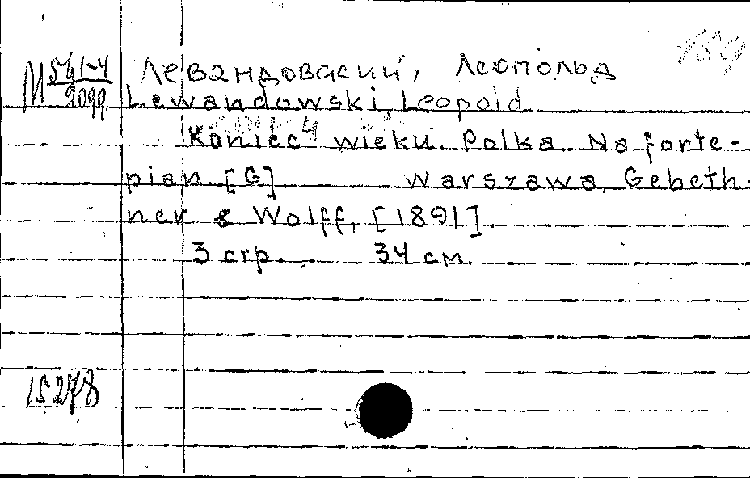 Левандовский, Леопольд
Lewandowski, Leopold
Koniec wieku. Polka. Na forte-
pian [G] Warszawa, Gebeth-
ner & Wolff, [1891].
3 стр. 34 см.
15278